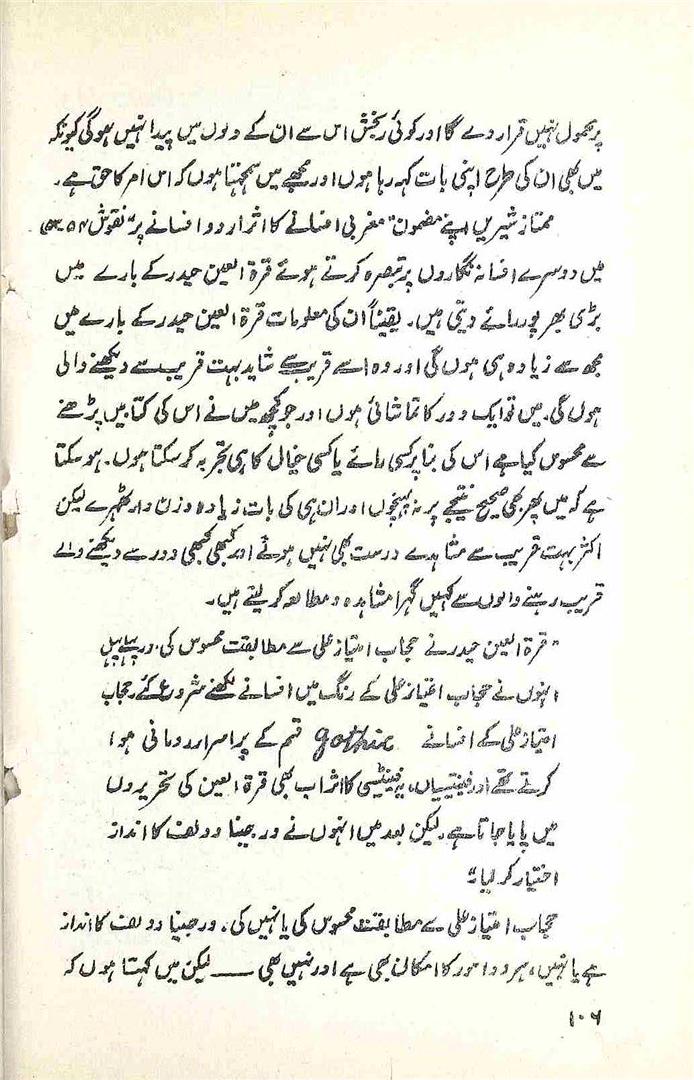 پر محمول نہیں قرار دے گا اور کوئی رنجش اس سے ان کے دلوں میں پیدا نہیں ہوگی کیونکہ
میں بھی ان کی طرح اپنی بات کہہ رہا ہوں اور مجھے میں سمجھتا ہوں کہ اس امر کا حق ہے۔
ممتاز شیریں اپنے مضمون "مغربی افسانے کا اثر اردو افسانے پر" نقوش
میں دوسرے افسانہ نگاروں پر تبصرہ کرتے ہوئے قرۃ العین حیدر کے بارے میں
بڑی بھرپور رائے دیتی ہیں۔ یقیناً ان کی معلومات قرۃ العین حیدر کے بارے میں
مجھ سے زیادہ ہی ہوں گی اور وہ اسے قریب سے شاید بہت قریب سے دیکھنے والی
ہوں گی۔ میں تو ایک دور کا تماشائی ہوں اور جو کچھ میں نے اس کی کتابیں پڑھنے
سے محسوس کیا ہے اس کی بنا پر کسی رائے یا کسی خیال کا ہی تجربہ کر سکتا ہوں۔ ہو سکتا
ہے کہ میں پھر بھی صحیح نتیجے پر نہ پہنچوں اور ان ہی کی بات زیادہ وزن دار ٹھہرے لیکن
اکثر بہت قریب سے مشاہدے درست بھی نہیں ہوتے اور کبھی کبھی دور سے دیکھنے والے
قریب رہنے والوں سے کہیں گہرا مشاہدہ و مطالعہ کر لیتے ہیں۔
"قرۃ العین حیدر نے حجاب امتیاز علی سے مطابقت محسوس کی۔ اور پہلے پہل
انہوں نے حجاب امتیاز علی کے رنگ میں افسانے لکھنے شروع کئے۔ حجاب
امتیاز علی کے افسانے gothic قسم کے پراسرار رومانی ہوا
کرتے تھے اور فینٹیسیاں، یہ فینٹیسی کا اثر اب بھی قرۃ العین کی تحریروں
میں پایا جاتا ہے۔ لیکن بعد میں انہوں نے ورجینا وولف کا انداز
اختیار کر لیا"
حجاب امتیاز علی سے مطابقت محسوس کی یا نہیں کی۔ ورجینا وولف کا انداز
ہے یا نہیں، ہر دو امور کا امکان بھی ہے اور نہیں بھی —— لیکن میں کہتا ہوں کہ
۱۰۶